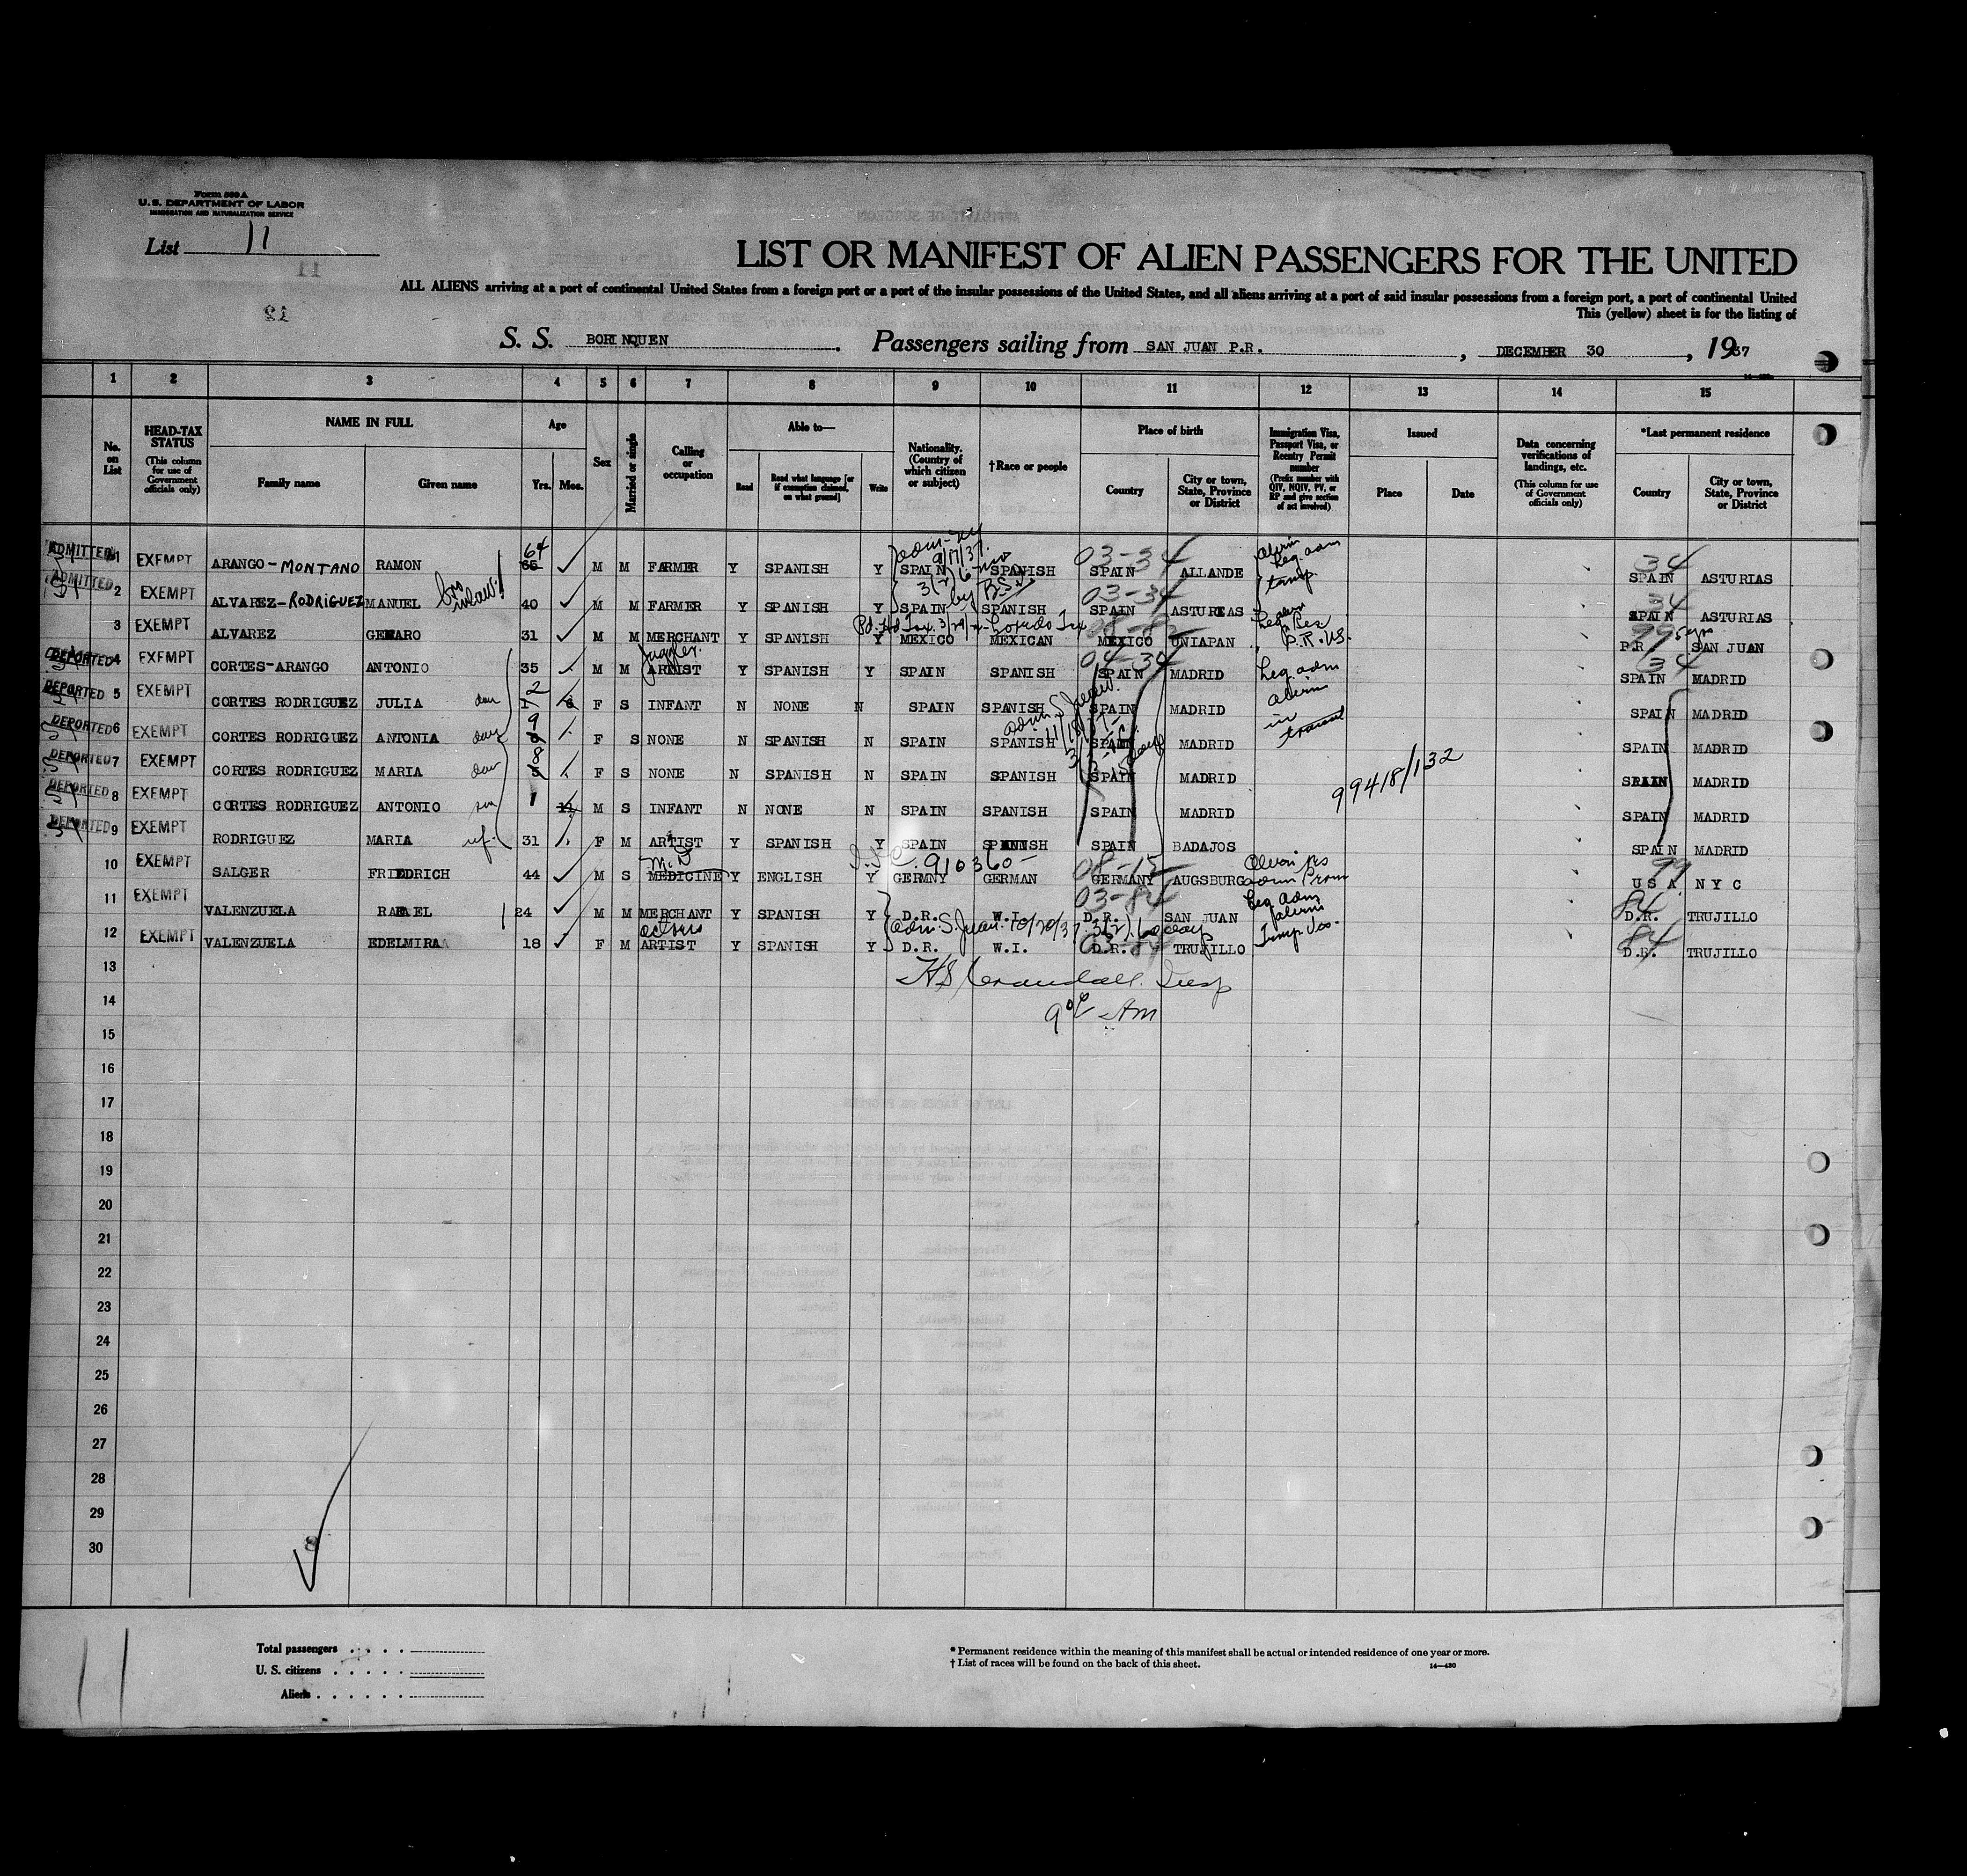 Form 500 A
U. S. DEPARTMENT OF LABOR
IMMIGRATION AND NATURALIZATION SERVICE
List 11
LIST OR MANIFEST OF ALIEN PASSENGERS FOR THE UNITED
ALL ALIENS arriving at a port of continental United States from a foreign port or a part of the insular possessions of the United States, and all aliens arriving at a port of said insular possessions from a foreign port, a port of continental United
This (yellow) sheet is for the listing of
S. S. BORINQUEN. Passengers sailing from SAN JUAN P.R., DECEMBER 30, 1937
1 2 3 4 5 6 7 8 9 10 11 12 13 14 15
No. on List
HEAD-TAX STATUS
(This column for use of Government officials only)
NAME IN FULL
Family name Given name
Age
Yrs. Mos.
Sex
Married or single
Calling or occupation
Able to—
Read
Read what language [or if exemption claimed, on what ground]
Write
Nationality. (Country of which citizen or subject)
†Race or people
Place of birth
Country
City or town, State, Province or District
Immigration Visa, Passport Visa, or Reentry Permit number
(Prefix number with QIV, NQIV, PV, or RP and give section of act involved)
Issued
Place Date
Data concerning verifications of landings, etc.
(This column for use of Government officials only)
*Last permanent residence
Country
City or town, State, Province or District
ADMITTED 1 EXEMPT ARANGO-MONTANO RAMON 65 64 M M FARMER Y SPANISH Y SPAIN SPANISH 03-34 SPAIN ALLANDE 34 SPAIN ASTURIAS
ADMITTED 2 EXEMPT ALVAREZ-RODRIGUEZ MANUEL bro inlaw 40 M M FARMER Y SPANISH Y SPAIN SPANISH 03-34 SPAIN ASTURIAS 34 SPAIN ASTURIAS
3 EXEMPT ALVAREZ GENARO 31 M M MERCHANT Y SPANISH Y MEXICO MEXICAN MEXICO UNIAPAN P.R. SAN JUAN
DEPORTED 4 EXEMPT CORTES-ARANGO ANTONIO 35 M M Juggler ARTIST Y SPANISH Y SPAIN SPANISH 04-34 SPAIN MADRID Leg adm 34 SPAIN MADRID
DEPORTED 5 EXEMPT CORTES RODRIGUEZ JULIA dau 2 F S INFANT N NONE N SPAIN SPANISH SPAIN MADRID SPAIN MADRID
DEPORTED 6 EXEMPT CORTES RODRIGUEZ ANTONIA dau 9 F S NONE N SPANISH N SPAIN SPANISH SPAIN MADRID in transit SPAIN MADRID
DEPORTED 7 EXEMPT CORTES RODRIGUEZ MARIA dau 8 F S NONE N SPANISH N SPAIN SPANISH SPAIN MADRID 99418/132 SPAIN MADRID
DEPORTED 8 EXEMPT CORTES RODRIGUEZ ANTONIO son 1 11 M S INFANT N NONE N SPAIN SPANISH SPAIN MADRID SPAIN MADRID
DEPORTED 9 EXEMPT RODRIGUEZ MARIA wf. 31 F M ARTIST Y SPANISH Y SPAIN SPANISH SPAIN BADAJOS SPAIN MADRID
10 EXEMPT SALGER FRIEDRICH 44 M S M.D MEDICINE Y ENGLISH Y 910360 GERMNY GERMAN 08-15 GERMANY AUGSBURG 99 U S A N Y C
11 EXEMPT VALENZUELA RAFAEL 24 M M MERCHANT Y SPANISH Y D.R. W.I. 03-84 D.R. SAN JUAN 84 D.R. TRUJILLO
adm. S. Juan. 10/20/37 3(2).
12 EXEMPT VALENZUELA EDELMIRA 18 F M actress ARTIST Y SPANISH Y D.R. W.I. D.R. TRUJILLO 84 D.R. TRUJILLO
13 HS Crandall. Insp
14 9 AM
15
16
17
18
19
20
21
22
23
24
25
26
27
28
29
30
11
Total passengers
U. S. citizens
Aliens
* Permanent residence within the meaning of this manifest shall be actual or intended residence of one year or more.
† List of races will be found on the back of this sheet.
14—430